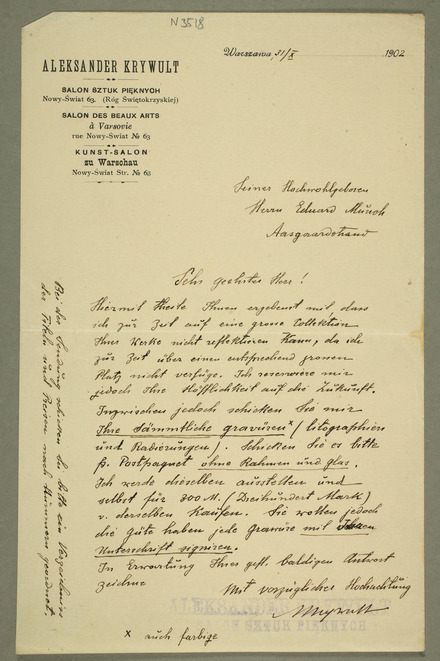 N 3518
Warszawa, 31/X 1902
ALEKSANDER KRYWULT
SALON SZTUK PIĘKNYCH
Nowy-Świat 63. (Róg Świętokrzyskiej)
SALON DES BEAUX ARTS
à Varsovie
rue Nowy-Swiat № 63
KUNST-SALON
zu Warschau
Nowy-Swiat Str. № 63
Seiner Hochwohlgeboren
Herrn Eduard Münch
Aasgaardstrand
Sehr geehrter Herr!
Hiermit theile Ihnen ergebenst mit, dass
ich zur Zeit auf eine grosse Collektion
Ihrer Werke nicht reflektiren kann, da ich
zur Zeit über einen entsprechend grossen
Platz nicht verfüge. Ich reservire mir
jedoch Ihre Höfflichkeit auf die Zukunft.
Inzwischen jedoch schicken Sie mir
Ihre Sämmtliche gravüren x (litographien
und Radierungen). Schicken Sie es bitte
p. Postpaquet ohne Rahmen und glas.
Ich werde dieselben austellen und
selbst für 300 M. (Dreihundert Mark)
v. derselben Kaufen. Sie wollen jedoch
die güte haben jede Gravüre mit Ihrer
Unterschrift signiren.
In Erwartung Ihrer gefl. baldigen Antwort
zeichne
Mit vorzüglicher Hochachtung
AKrywult
ALEKSANDER KRYWULT
SALON SZTUK PIĘKNYCH
x auch farbige
Bei der Sendung schicken Sie bitte ein Verzeichniss
der Titeln und Preisen nach Nummern geordnet